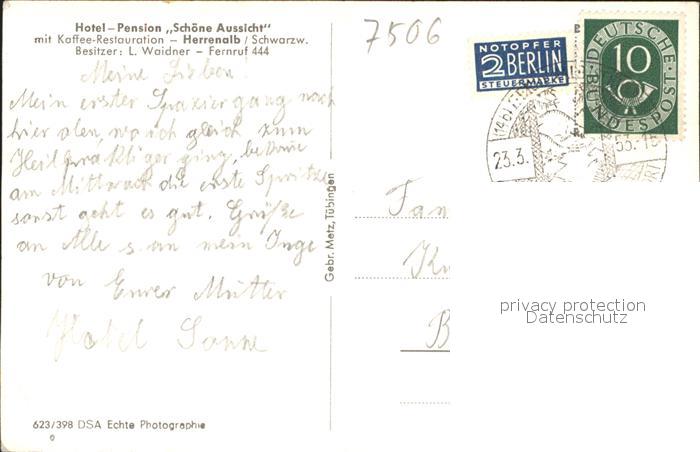 Hotel – Pension „Schöne Aussicht"
mit Kaffee-Restauration – Herrenalb / Schwarzw.
Besitzer: L. Waidner – Fernruf 444
7506
NOTOPFER
2 BERLIN
STEUERMARKE
DEUTSCHE
10
BUNDESPOST
(14b)
23.3.
53.-15
Meine Lieben!
Mein erster Spaziergang nach
hier oben, wo ich gleich zum
Heilpraktiger ging, bekomme
am Mittwoch die erste Spritze
sonst geht es gut. Grüße
an Alle s. an mein Inge
von Eurer Mutter
Hotel Sonne
Gebr. Metz, Tübingen
Fam
privacy protection
Datenschutz
B
623/398 DSA Echte Photographie